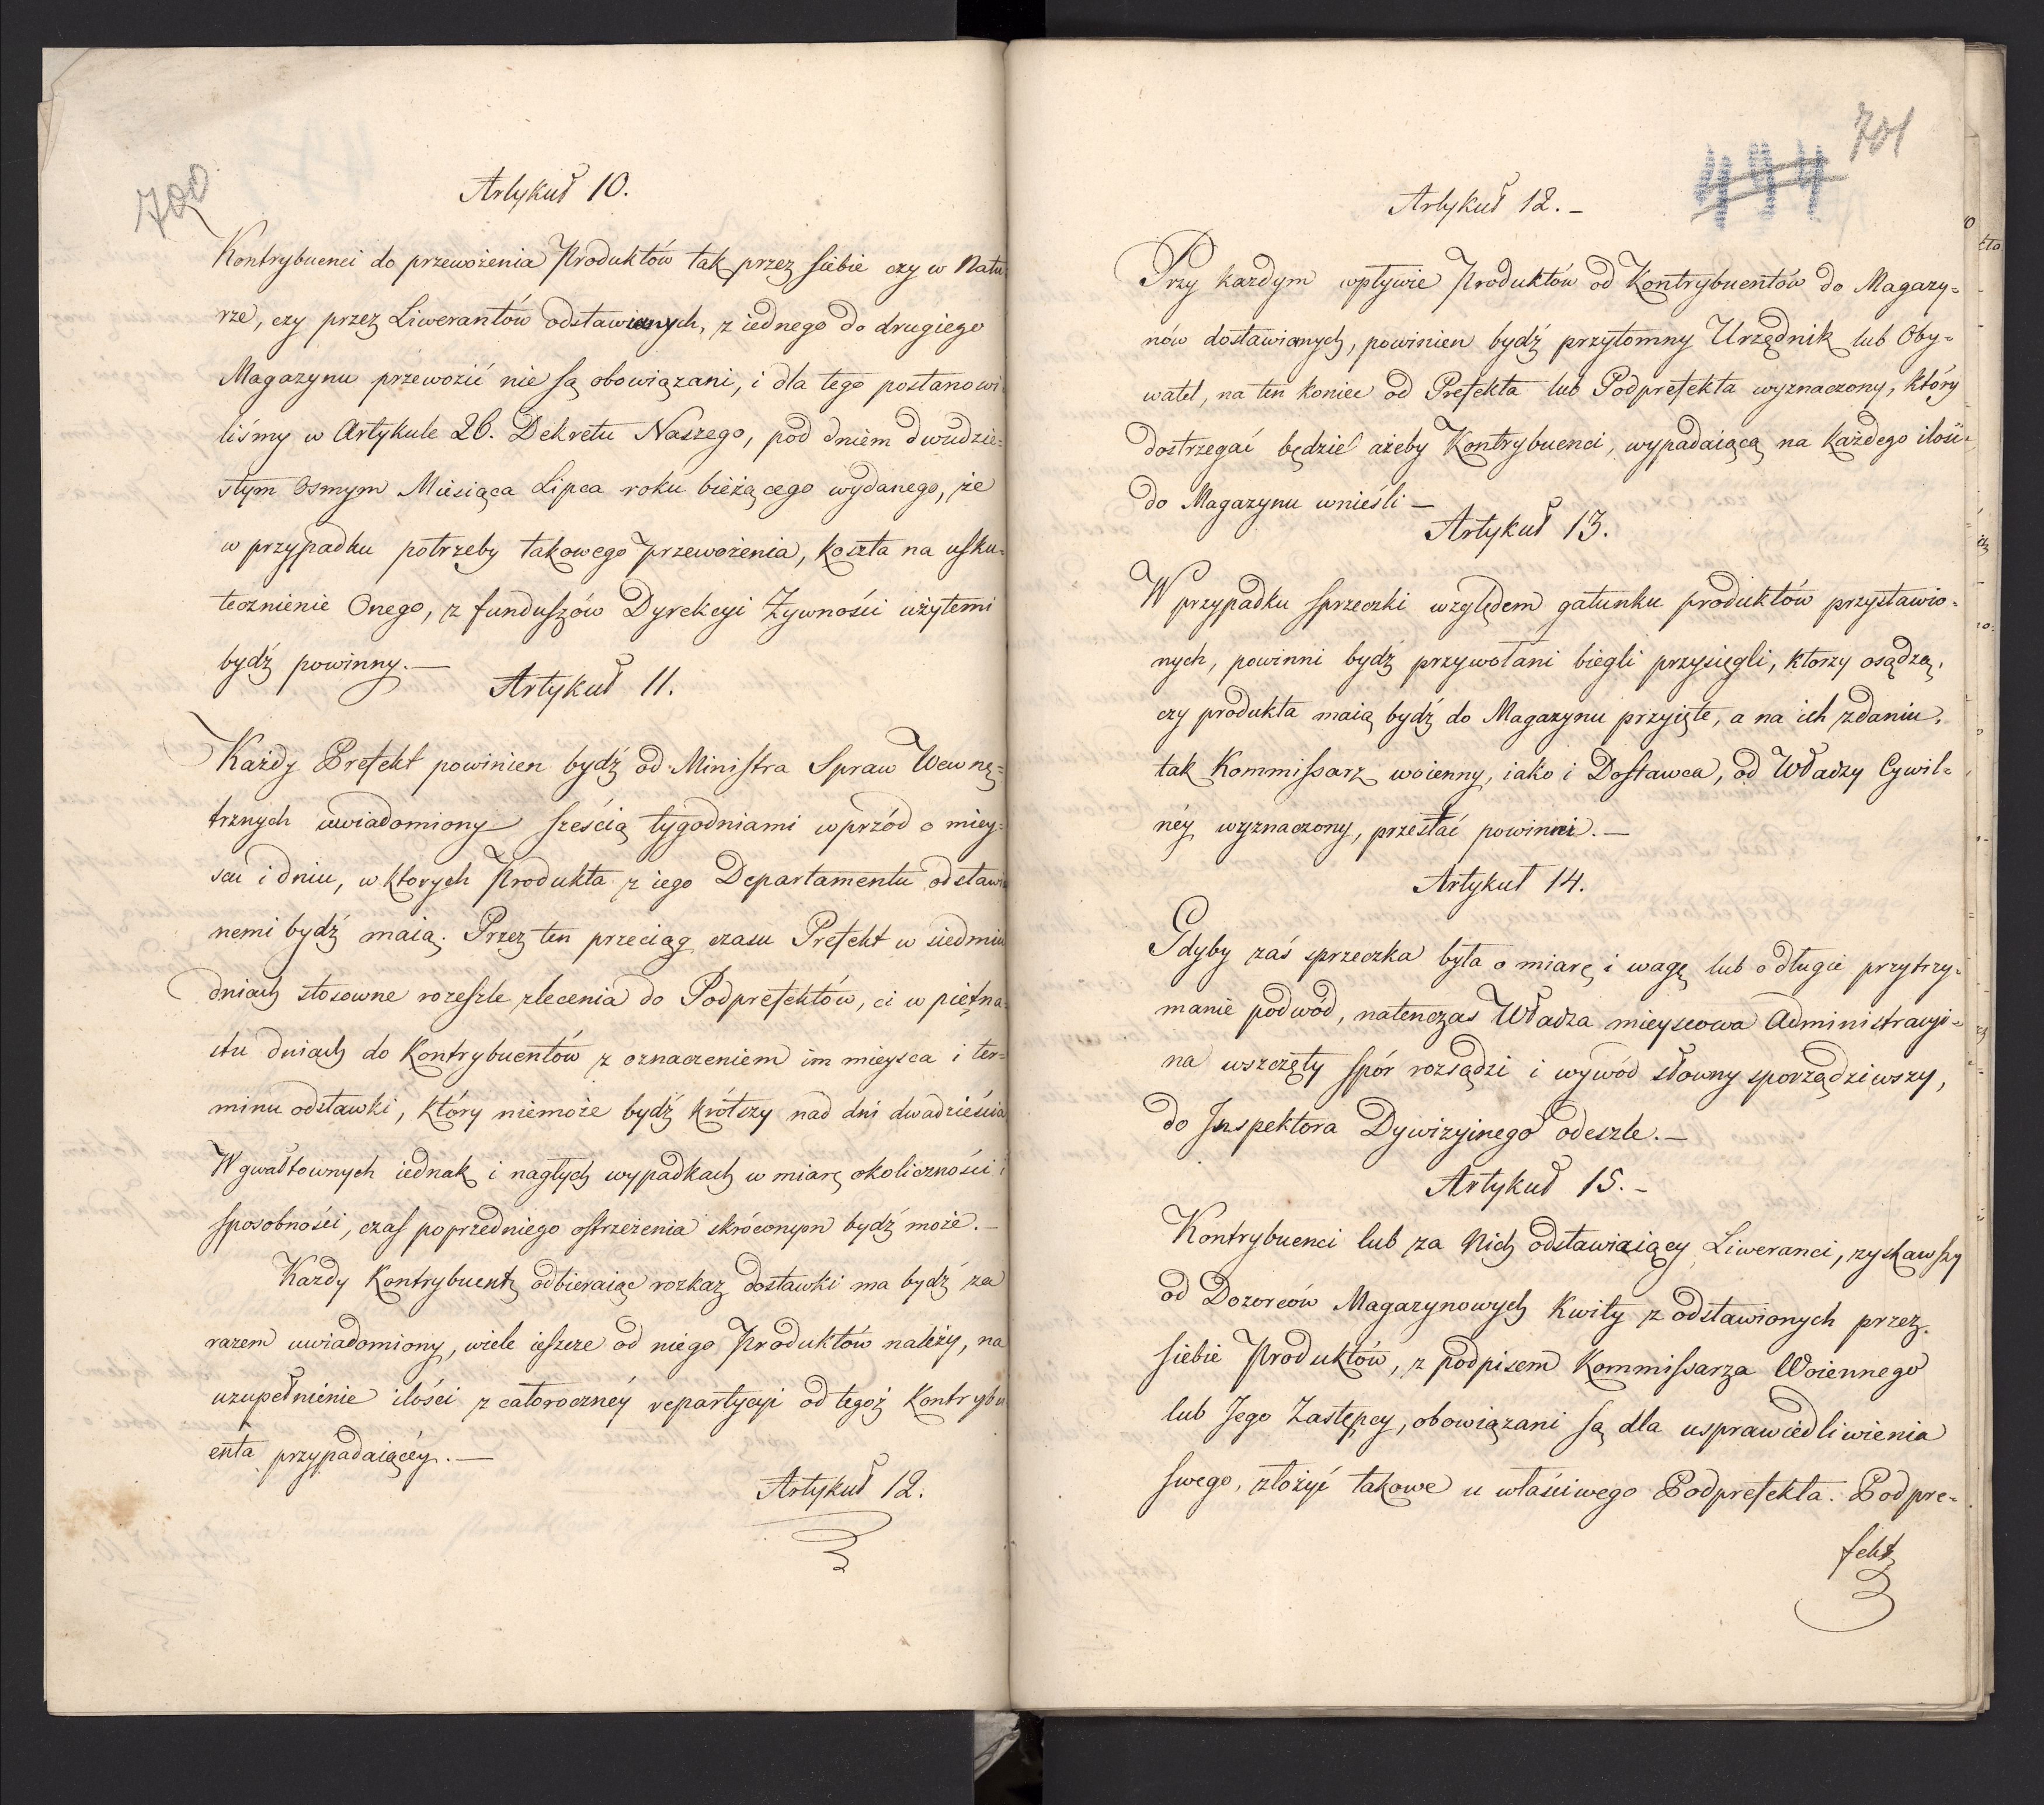 700
Artykuł 10.
Kontrybuenci do przewożenia Produktów tak przez siebie czy w Natu-
rze, czy przez Liwerantów odstawionych, z iednego do drugiego
Magazynu przewozić nie są obowiązani, i dla tego postanowi
liśmy w Artykule 26. Dekretu Naszego, pod dniem dwudzie-
stym Osmym Miesiąca Lipca roku bieżącego wydanego, że
w przypadku potrzeby takowego przewożenia, koszta na usku-
tecznienie Onego, z funduszów Dyrekcyi Żywności użytemi
bydź powinny. —
Artykuł 11.
Każdy Prefekt powinien bydź od Ministra Spraw Wewnę-
trznych uwiadomiony sześcią tygodniami wprzód o miey-
scu i dniu, w ktorych Produkta z iego Departamentu odstawio
nemi bydź maią. Przez ten przeciąg czasu Prefekt w siedmiu
dniach stosowne rozeszle zlecenia do Podprefektów, ci w piętna-
stu dniach do Kontrybuentów z oznaczeniem im mieysca i ter-
minu odstawki, który niemoże bydź krótszy nad dni dwadzieścia
W gwałtownych iednak i nagłych wypadkach w miarę okoliczności i
sposobności, czas poprzedniego ostrzeżenia skróconym bydź może. —
Kazdy Kontrybuent odbieraiąc rozkaz dostawki ma bydź za
razem uwiadomiony, wiele ieszcze od niego Produktów należy, na
uzupełnienie ilości z całoroczney repartycyi od tegoż Kontrybu
enta przypadaiącey. —
Artykuł 12.
701
444
Artykuł 12. —
Przy kazdym wpływie Produktów od Kontrybuentów do Magazy-
nów dostawianych, powinien bydź przytomny Urzędnik lub Oby-
watel, na ten koniec od Prefekta lub Podprefekta wyznaczony, który
dostrzegać będzie ażeby Kontrybuenci, wypadaiącą na każdego ilość
do Magazynu wnieśli —
Artykuł 13.
W przypadku sprzeczki względem gatunku produktów przystawio-
nych, powinni bydź przywołani biegli przysięgli, ktorzy osądzą,
czy produkta maią bydź do Magazynu przyięte, a na ich zdaniu,
tak Kommissarz woienny, iako i Dostawca, od Władzy Cywil-
néy wyznaczony, przestać powinni. —
Artykuł 14.
Gdyby zaś sprzeczka była o miarę i wagę lub o długie przytrzy-
manie podwód, natenczas Władza mieyscowa Administracyi-
na wszczęty spór rozsądzi i wywód słowny sporządziwszy,
do Inspektora Dywizyinego odeszle. —
Artykuł 15. —
Kontrybuenci lub za Nich odstawiaiący Liweranci, zyskawszy
od Dozorców Magazynowych Kwity z odstawionych przez
siebie Produktów, z podpisem Kommissarza Woiennego
lub Jego Zastępcy, obowiązani są dla usprawiedliwienia
swego, złożyć takowe u właściwego Podprefekta. Podpre-
fekt